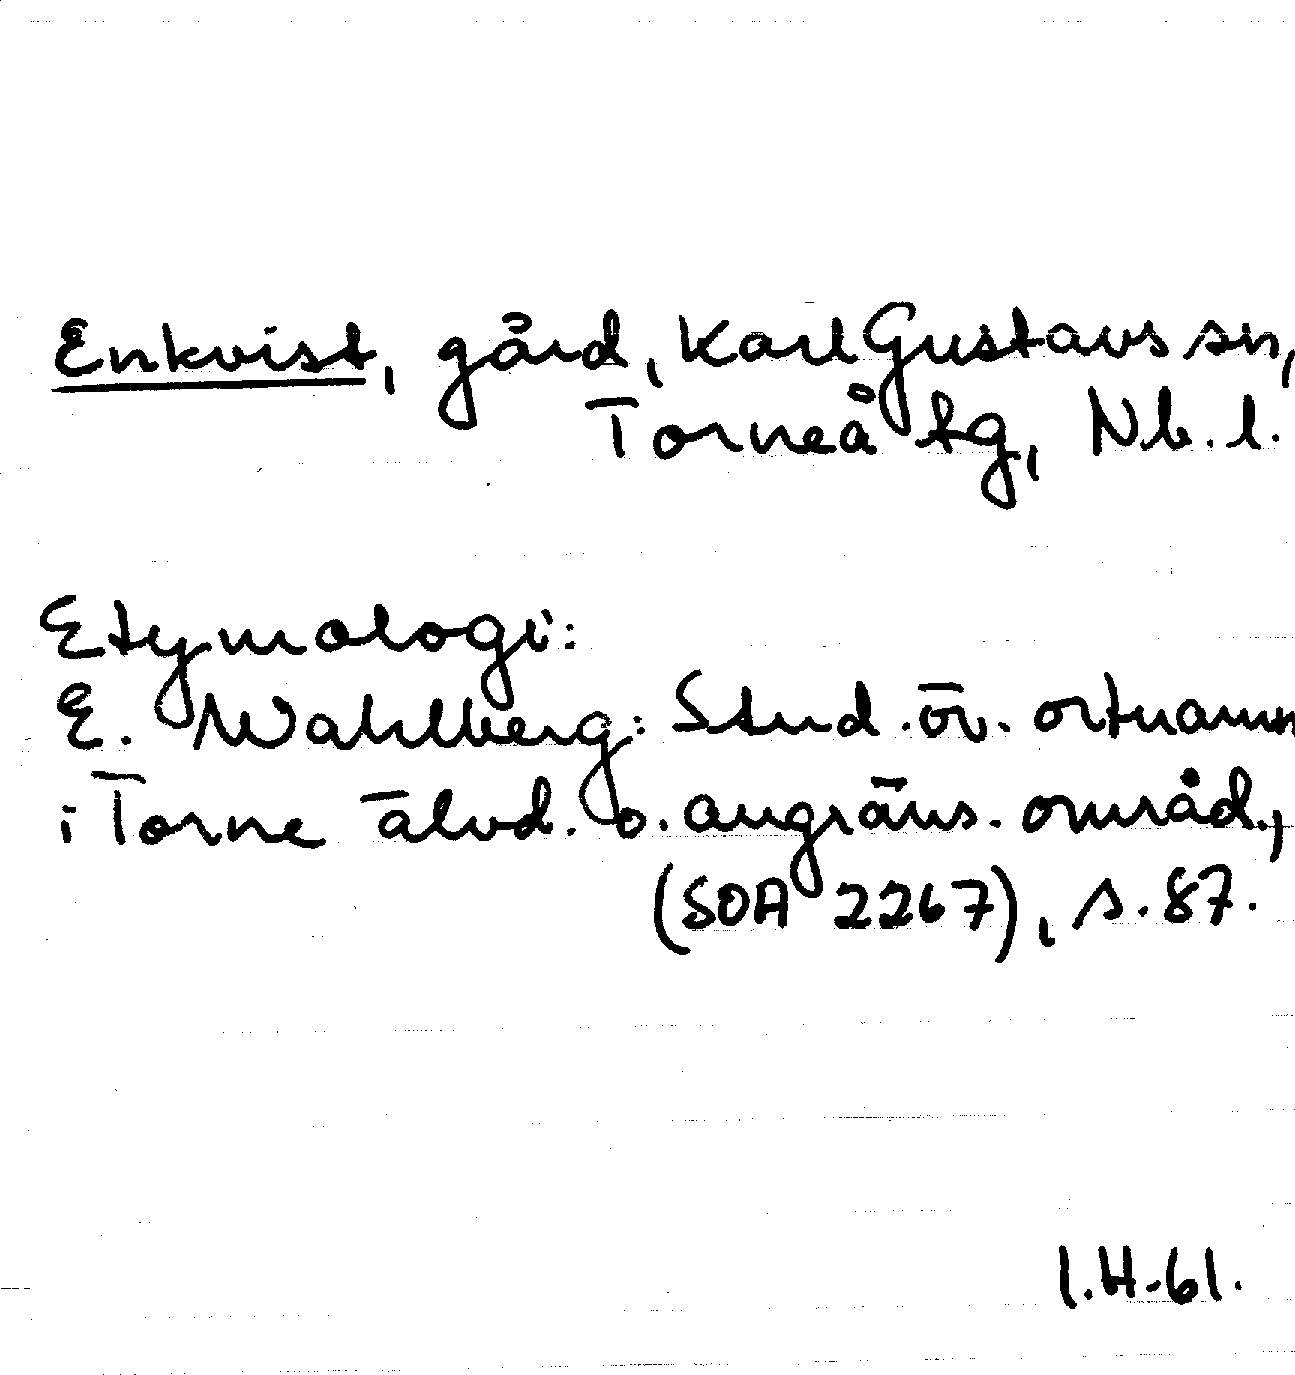 Enkvist, gård, Karl Gustavs sn,
Torneå tg, Nb. l.
Etymologi:
E. Wahlberg: Stud. öv. ortnamn
i Torne älvd. o. angräns. områd.,
(SOA 2267), s. 87.
I.H-61.